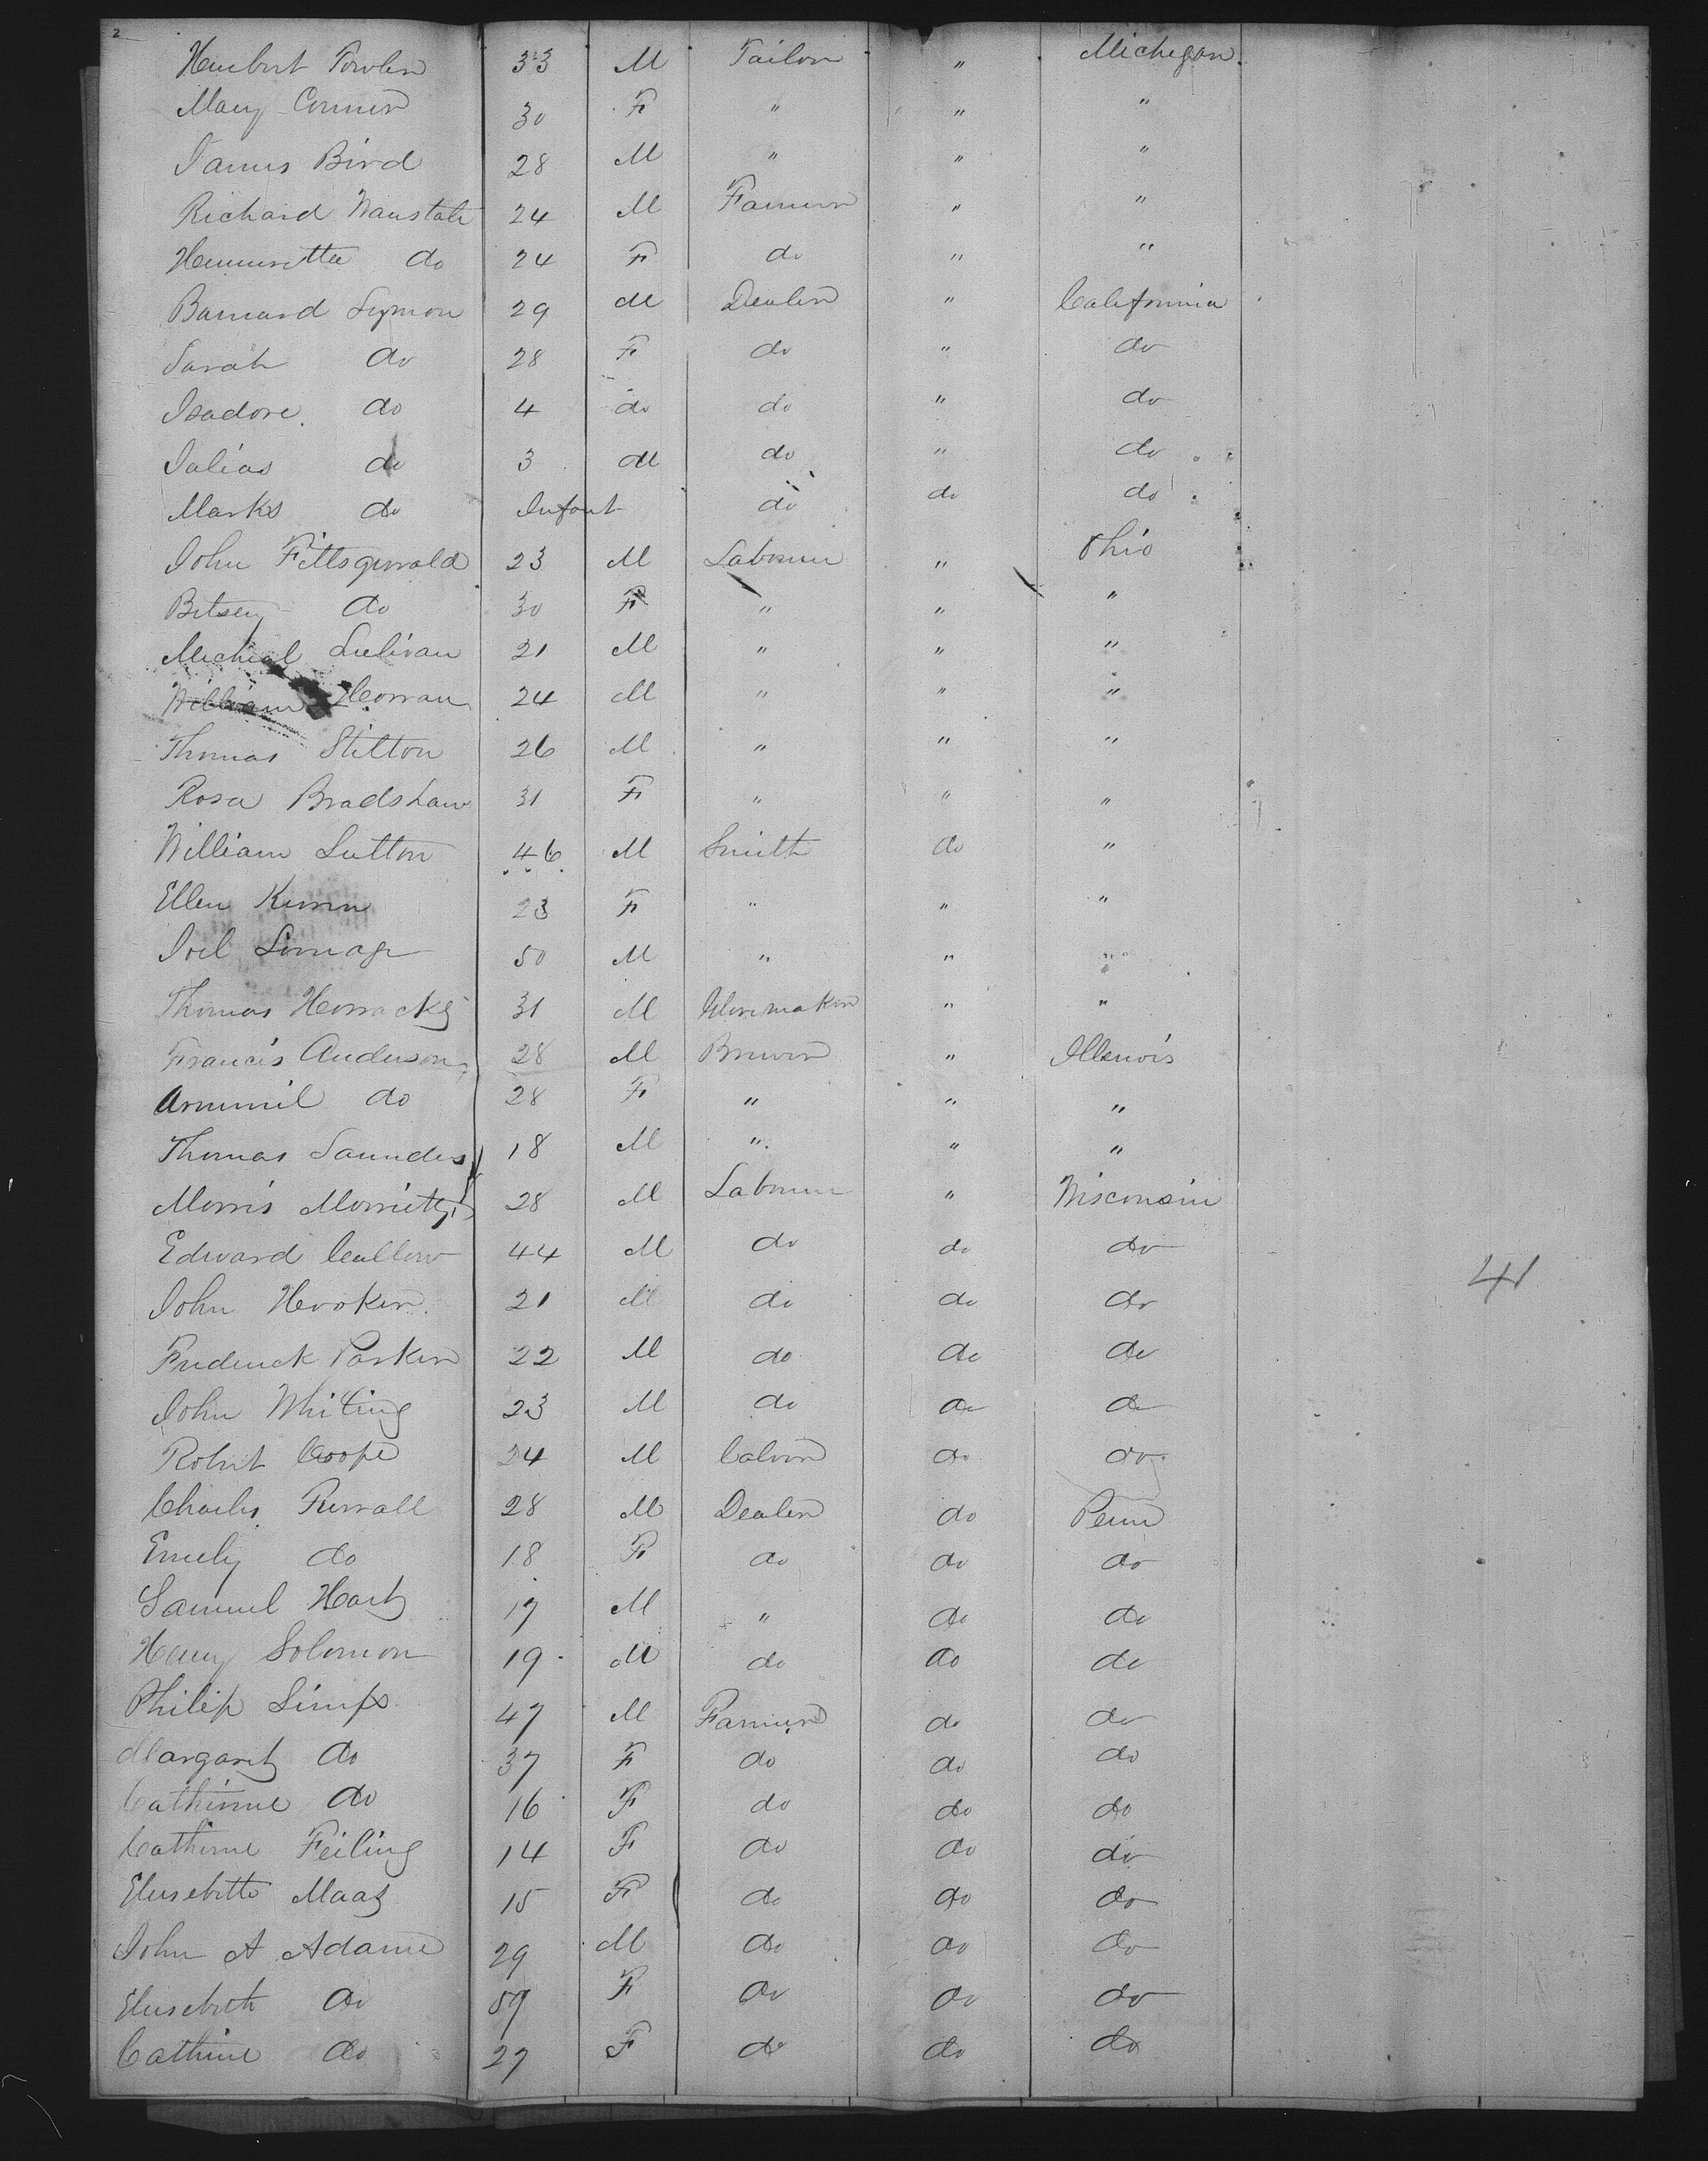 2
Herbert Fowler 33 M Tailor " Michegan.
Mary Conner 30 F " " "
James Bird 28 M " " "
Richard Wanstall 24 M Farmer " "
Hennretta do 24 F do " "
Barnard Symon 29 M Dealer " California
Sarah do 28 F do " do
Isadore. do 4 do do " do
Julias do 3 M do " do
Marks do Infant do do do
John Fittsgerrald 23 M Labourer " Ohio
Betsey do 30 F " " "
Micheal Sulivan 21 M " " "
William Horran 24 M " " "
Thomas Stilton 26 M " " "
Rosa Bradshaw 31 F " " "
William Sutton 46 M Smith do "
Ellen 23 F " " "
Joel 50 M " " "
Thomas Horrocks 31 M " "
Francis Anderson 28 M Brewer " Illenois
do 28 F " " "
Thomas Saunders 18 M " " "
Morris 28 M Labourer " Wisconsin
Edward Callow 44 M do do do
John Hooker 21 M do do do
Frederick Parker 22 M do do do
John Whiting 23 M do do do
Robert Coope 24 M do do
Charles Furrall 28 M Dealer do Penn
Emely do 18 F do do do
Samuel Hart 17 M " do do
Harry Solomon 19 M do do do
Philip 47 M Farmer do do
Margaret do 37 F do do do
Catherine do 16 F do do do
Catherine Feiling 14 F do do do
Elisebetto Maaz 15 F do do do
John A Adame 29 M do do do
Elisebeth do 59 F do do do
Cathrine do 27 F do do do
41